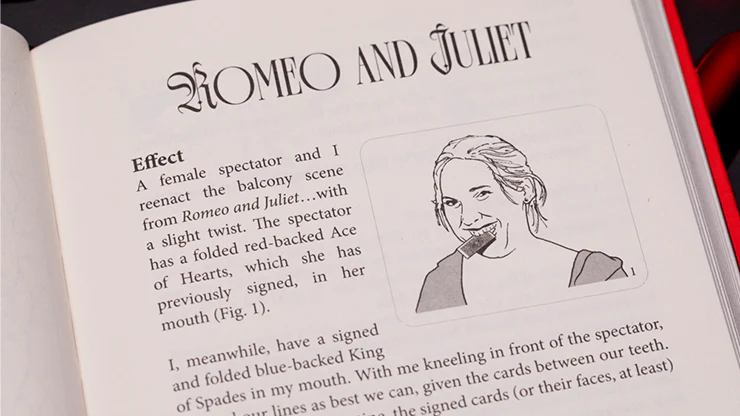 ROMEO AND JULIET
Effect
A female spectator and I
reenact the balcony scene
from Romeo and Juliet…with
a slight twist. The spectator
has a folded red-backed Ace
of Hearts, which she has
previously signed, in her
mouth (Fig. 1).
1
I, meanwhile, have a signed
and folded blue-backed King
of Spades in my mouth. With me kneeling in front of the spectator,
our lines as best we can, given the cards between our teeth.
the signed cards (or their faces, at least)